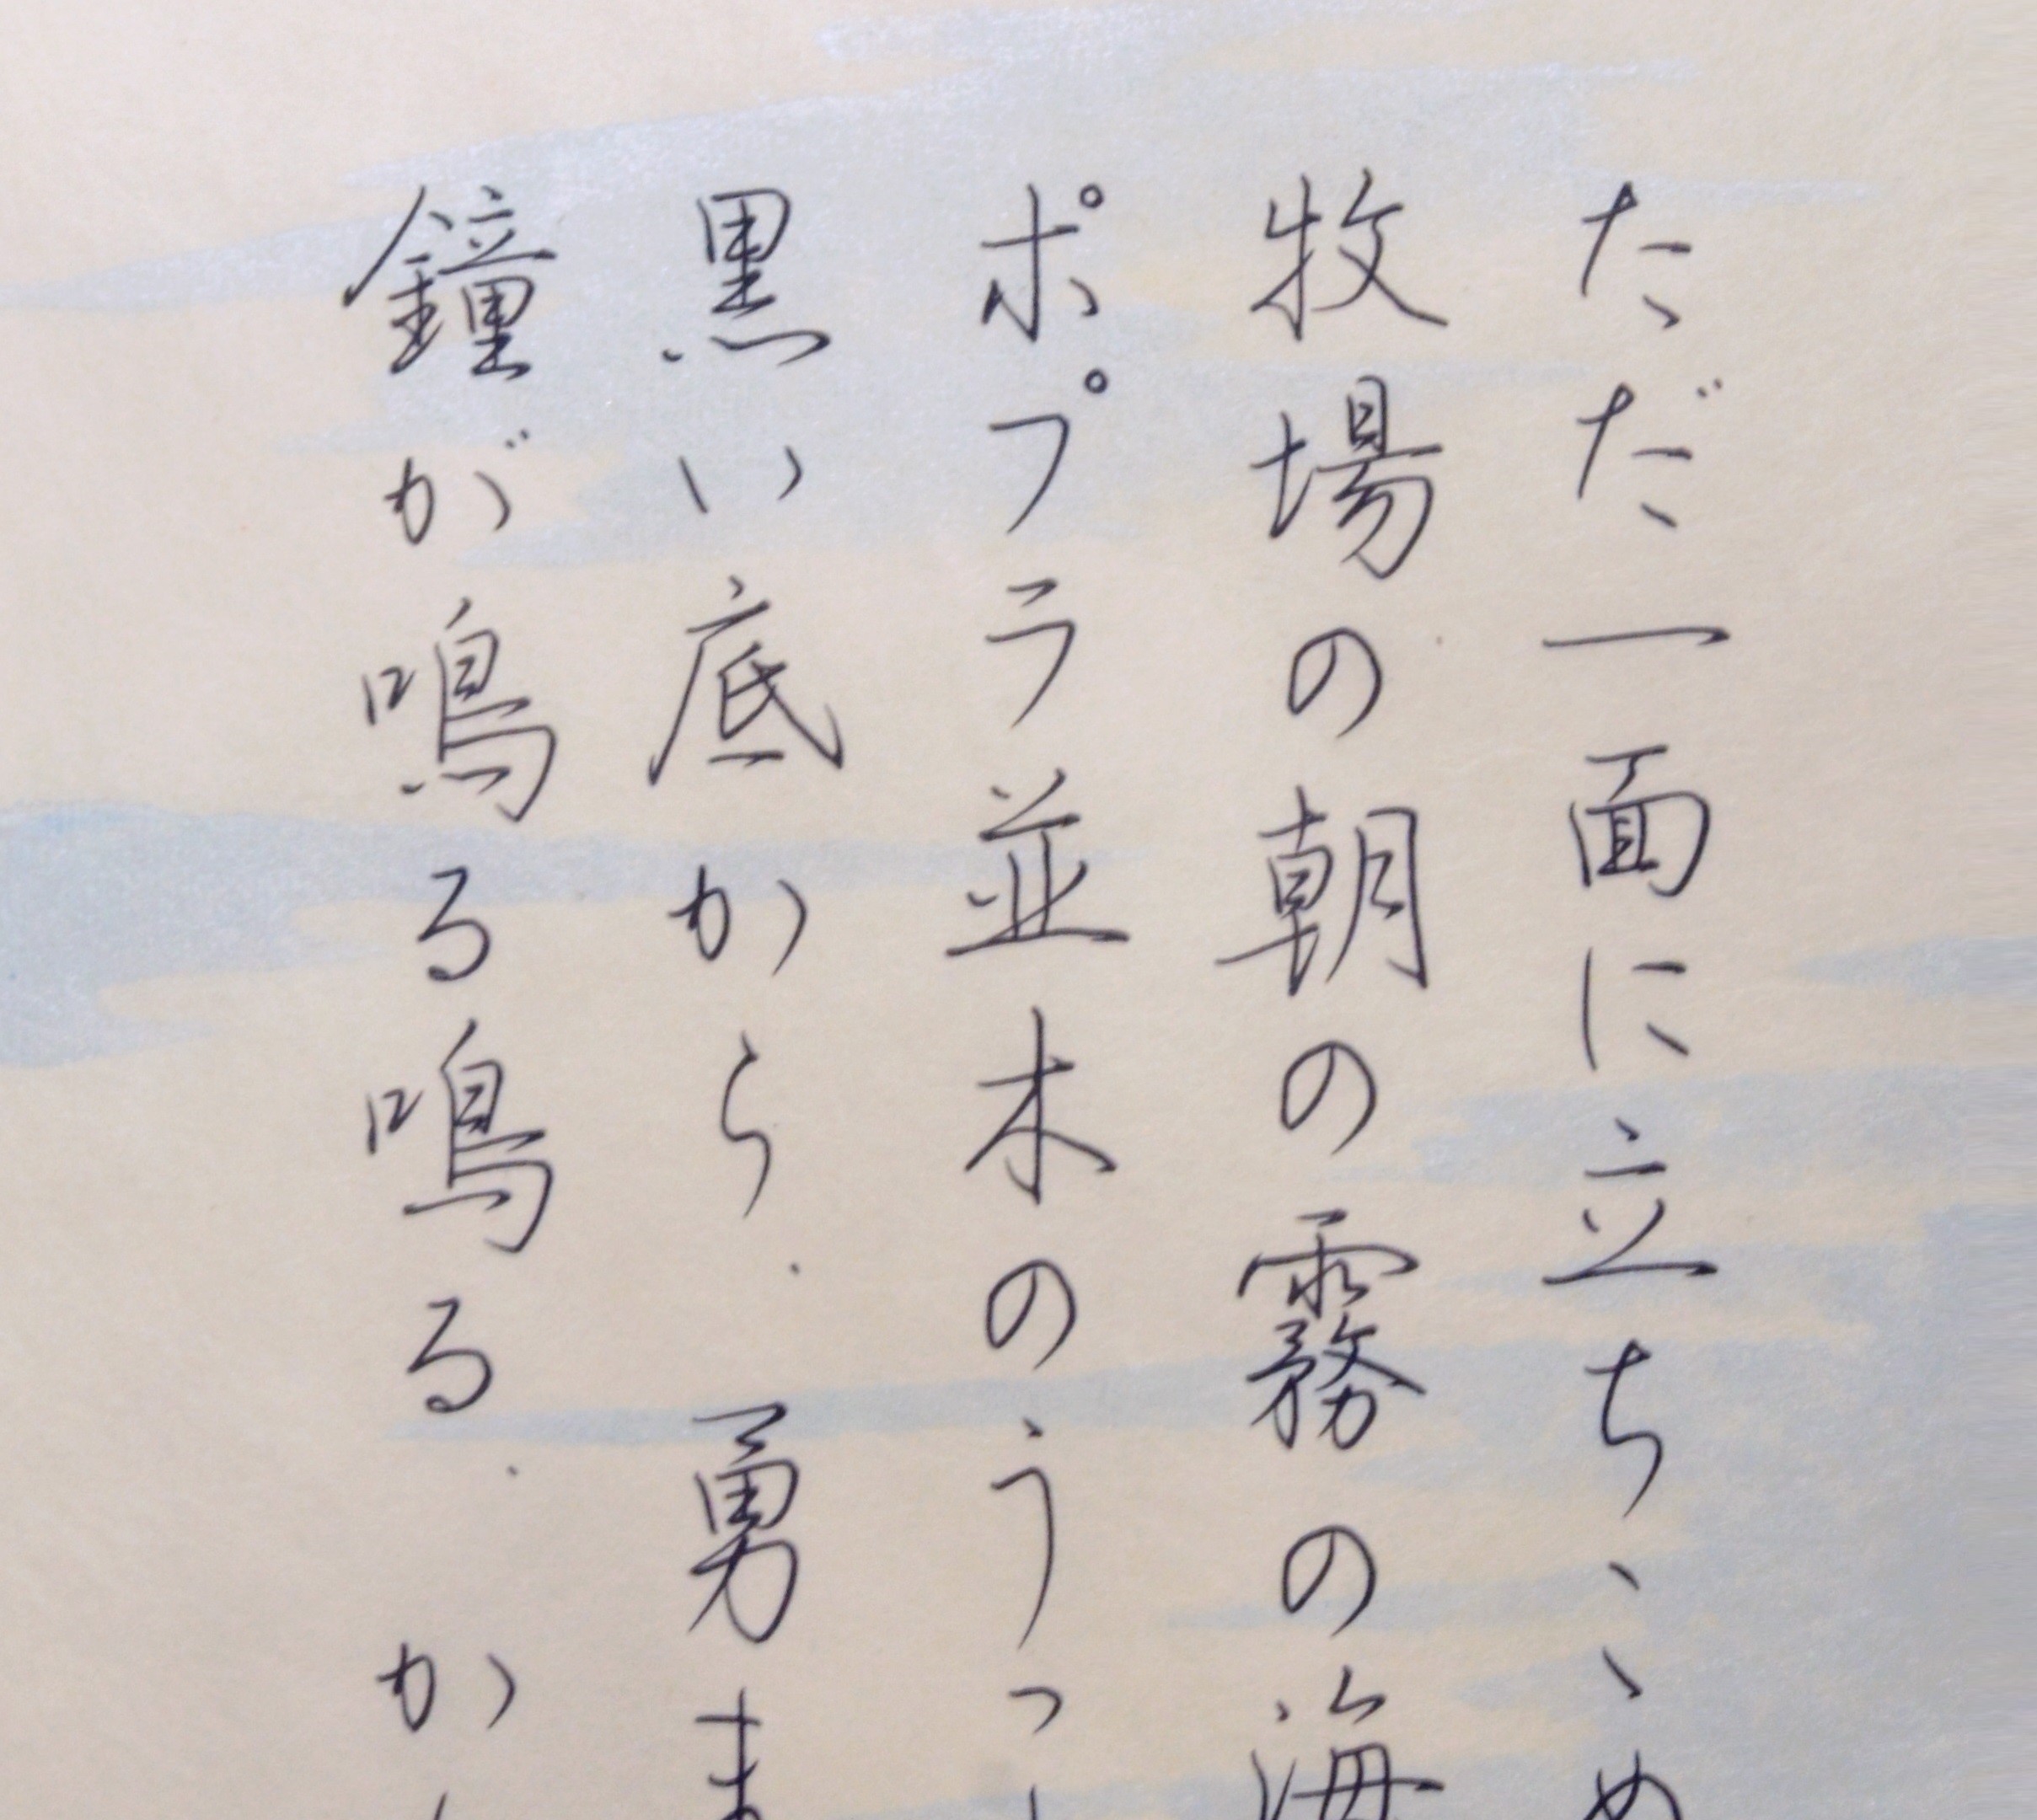 ただ一面に立ちこめ
牧場の朝の霧の海
ポプラ並木のうっ
黒い底から 勇ま
鐘が鳴る鳴る か